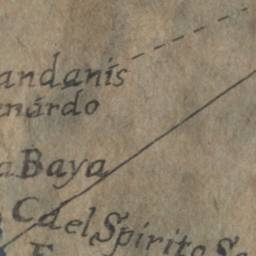 andanis
nardo
a Baya
C del Spirito Sa